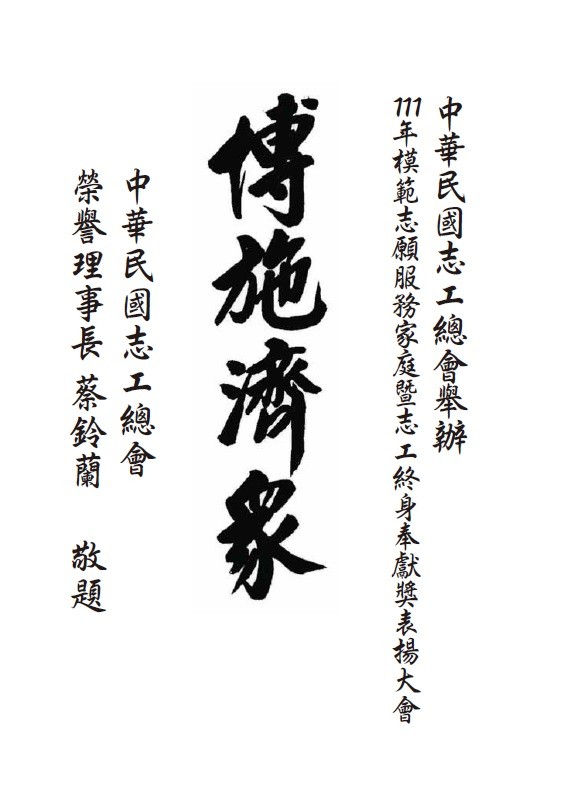 中華民國志工總會舉辦
111年模範志願服務家庭暨志工終身奉獻獎表揚大會
博施濟眾
中華民國志工總會
榮譽理事長 蔡鈴蘭 敬題